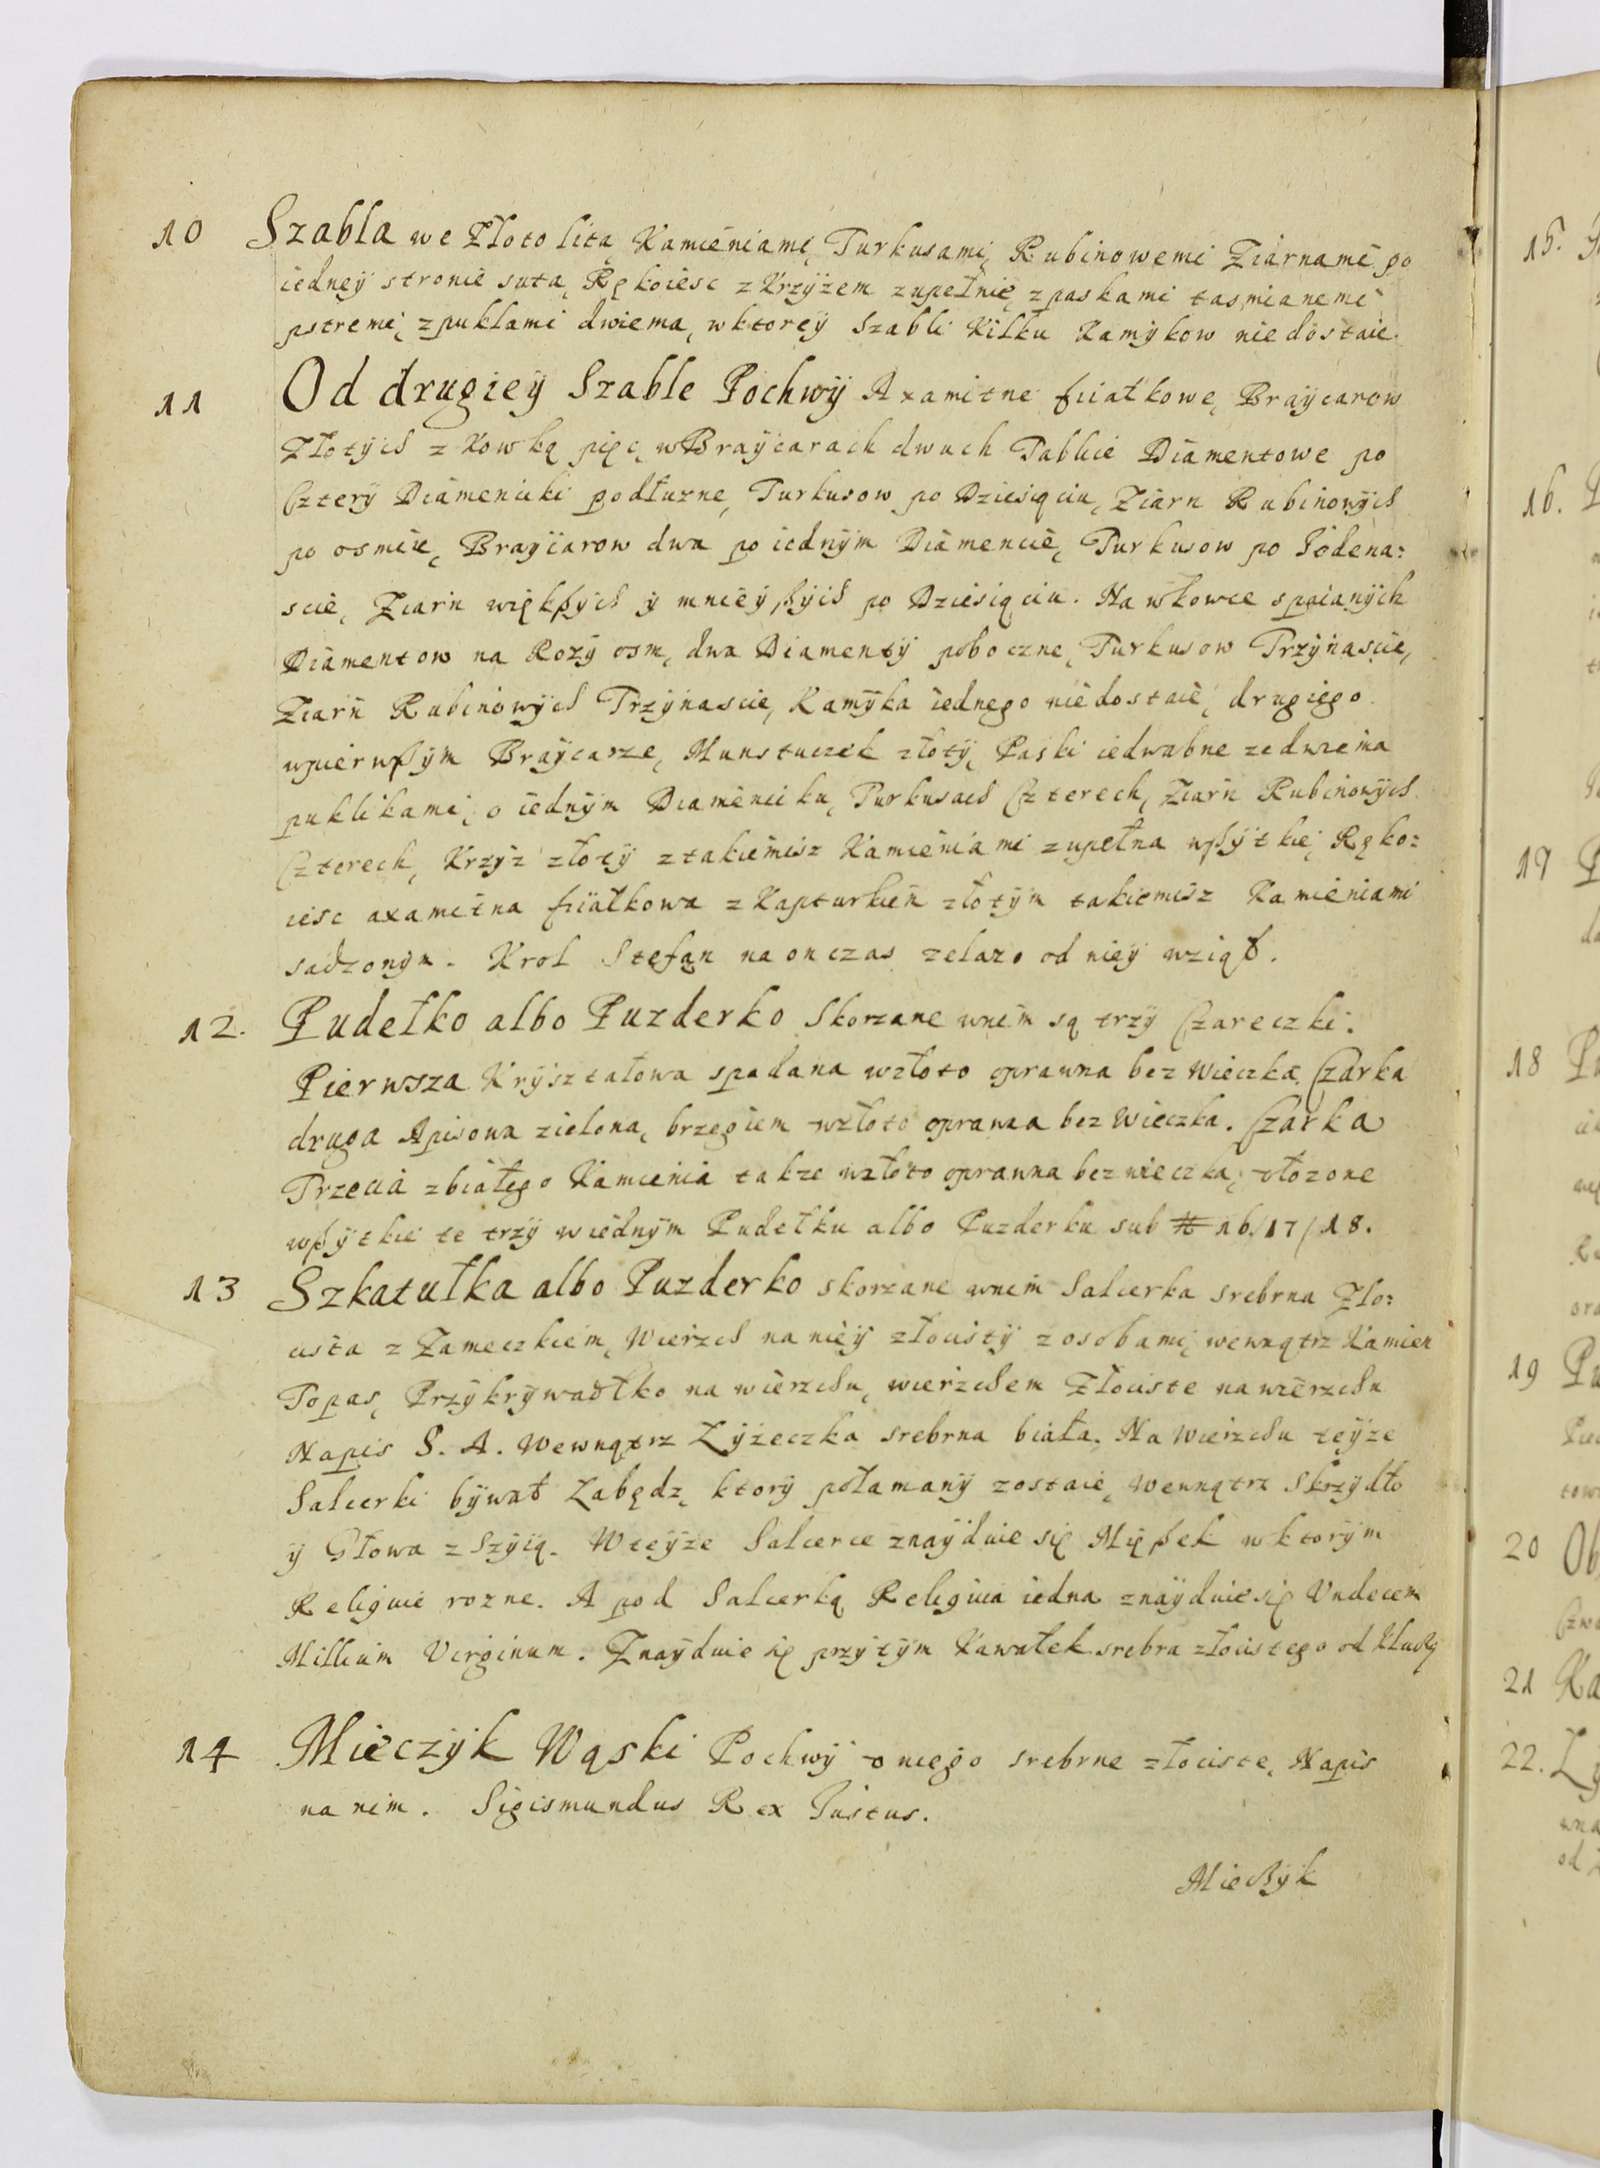 10 Szabla we Złoto lita, Kamieniami, Turkusami, Rubinowemi Ziarnami po
iedneÿ stronie suta, Rękoiesc z Krzÿżem zupełnie, z paskami tasmianemi
pstremi, z puklami dwiema, w ktoreÿ Szabli Kilku Kamÿkow nie dostaie.
11 Od drugieÿ Szable Pochwÿ Axamitne fiiałkowe, Braÿcarow
Złotÿch z Kowką pięc, w Braÿcarach dwuch Tablice Diamentowe po
Czterÿ Diamenciki podłuzne, Turkusow po Dziesiąciu, Ziarn Rubinowÿch
po osmiu, Braÿcarow dwa po iednÿm Diamencie, Turkusow po Jedena:
scie, Ziarn więkßÿch ÿ mnieÿßÿch po Dziesiąciu. Na wkowce spaianÿch
Diamentow na Rozÿ osm, dwa Diamentÿ poboczne, Turkusow Trzÿnascie,
Ziarn Rubinowÿch Trzÿnascie, Kamÿka iednego niedostaie, drugiego
wpierwßÿm Braÿcarze, Munsztuczek złotÿ, Paski iedwabne ze dwiema
puklikami, o iednÿm Diamenciku, Turkusach Czterech, Ziarn Rubinowÿch
Czterech, Krzÿz złotÿ z takiemisz Kamieniami zupełna wßÿtkie, Ręko:
iesc axamitna fiiałkowa z Kapturkien złotÿm takiemisz Kamieniami
sadzonÿm. Krol Stefan na on czas zelazo od nieÿ wziął.
12. Pudełko albo Puzderko Skorzane wnim są trzÿ Czareczki.
Pierwsza Krÿształowa spadana wzłoto oprawna bez Wieczka, Czarka
druga Apisowa zielona, brzegiem wzłoto oprawna bez Wieczka. Czarka
Trzecia z białego Kamienia takze wzłoto oprawna bez wieczka, złozone
wßÿtkie te trzÿ w iednÿm Pudełku albo Puzderku sub # 16/17/18.
13 Szkatułka albo Puzderko skorzane wnim Salcerka srebrna Zło:
cista z Zameczkiem, Wierzch na nieÿ złocistÿ z osobami, wewnątrz Kamien
Topas, Przÿkrÿwadłko na wierzchu, wierzchem Złociste na wierzchu
Napis S. A. Wewnątrz Lÿżeczka srebrna biała. Na Wierzchu teÿże
Salcerki bÿwał Łabędz, ktorÿ połamanÿ zostaie, wewnątrz Skrzÿdło
ÿ Głowa z Szÿią. Wteÿże Salcerce znaÿduie się Mießek w ktorÿm
Religuie rozne. A pod Salcerką Religuia iedna znaÿduie się Vndecem
Millium Virginum. Znaÿduie się przÿ tÿm Kawałek srebra złocistego od
14 Mieczÿk Wąski Pochwÿ o niego srebrne złociste, Napis
na nim. Sigismundus Rex Justus.
Mießÿk
15.
16.
17
18
19
20
21
22.